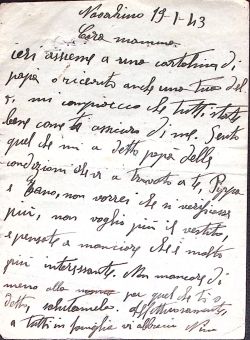 Nosadino 19-1-43
Cara mamma.
ieri assieme a una cartolina di
papà o ricevuto anche una tua del
mi compiaccio che tutti state
bene come ti assicuro di me. Sento
quel che mi a detto papà delle
condizioni che vi a trovato a te, Peppa
e Zano, non vorrei che si verificasse
più, non voglio più il vestito
e pensate a mangiare che è molto
più interessante. Non mancare di
meno alla per quel che ti o
detto, salutamela. Affettuosamente
a tutti in famiglia vi abbraccio Nino